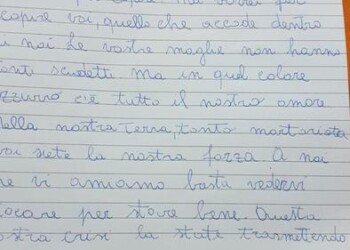 capire voi, quello che accade dentro
noi le vostre maglie non hanno
scudetti ma in quel colore
azzurro c'è tutto il nostro amore
della nostra terra, tanto martoriata
voi siete la nostra forza a noi
che vi amiamo basta vedervi
giocare per stare bene. Questa
la state trasmettendo